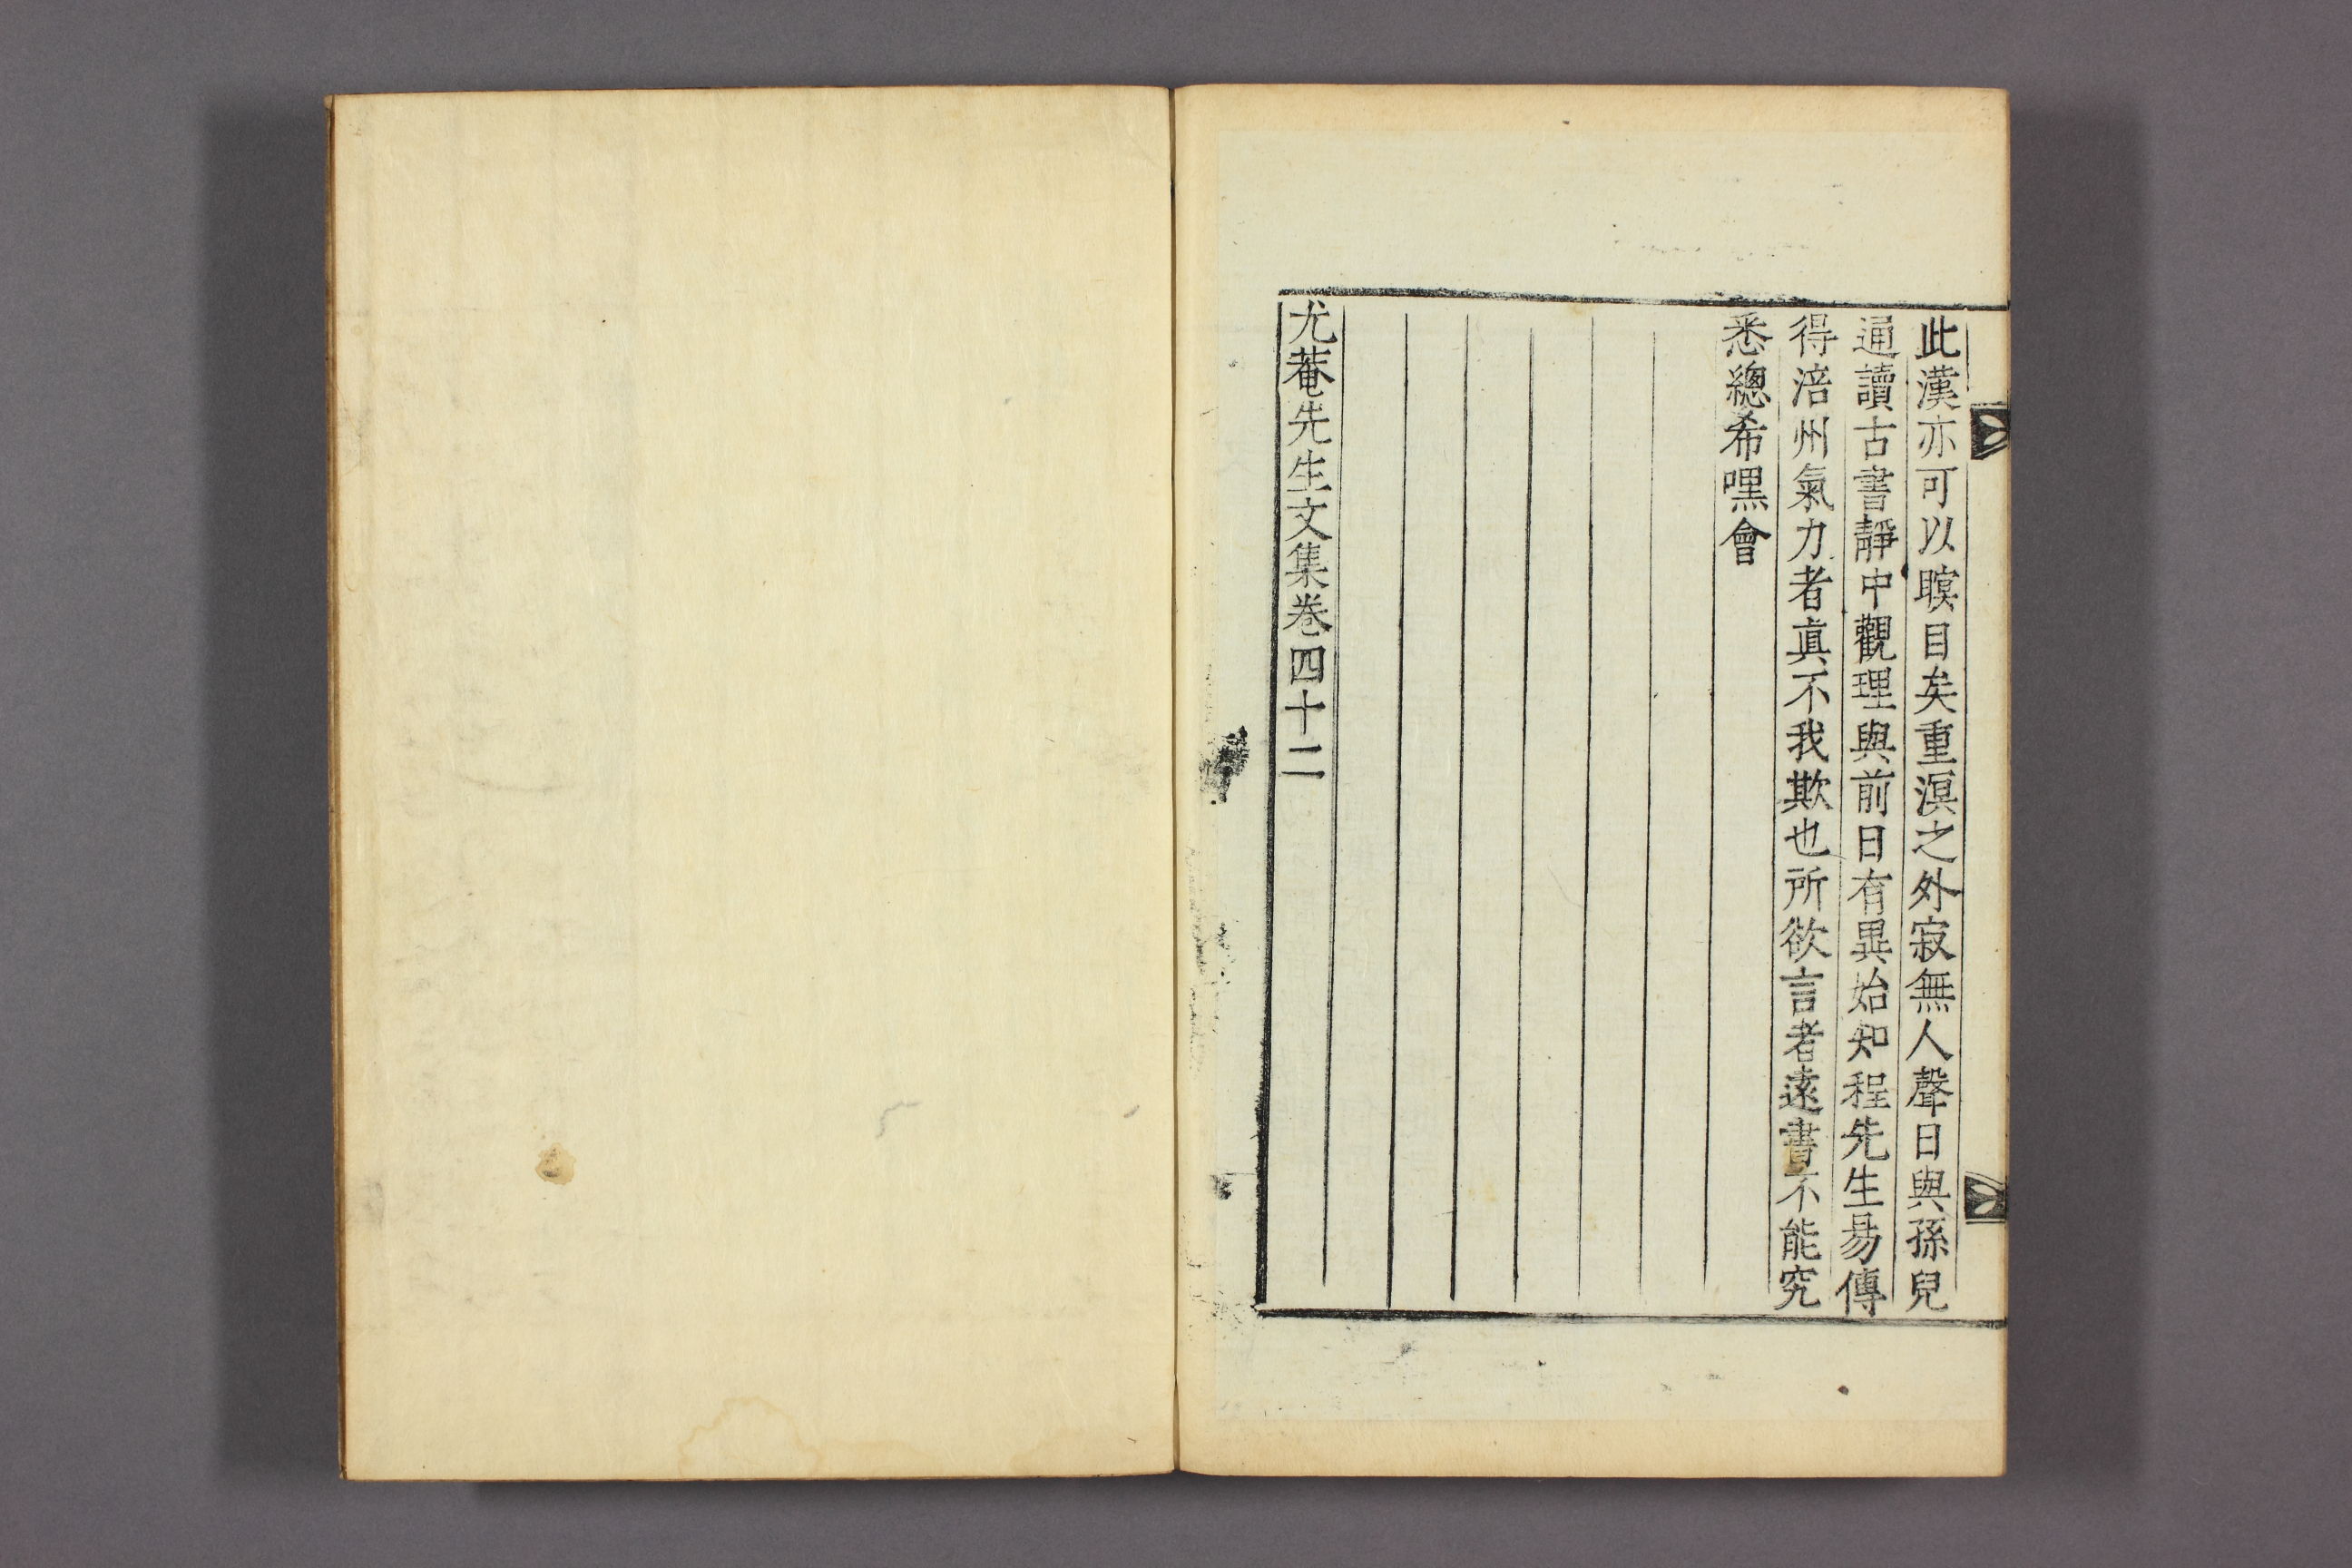 此漢亦可以瞑目矣重溟之外寂無人聲日與孫兒
通讀古書靜中觀理與前日有異始知程先生易傳
得涪州氣力者眞不我欺也所欲言者遠書不能究
悉總希嘿會
尤菴先生文集卷四十二